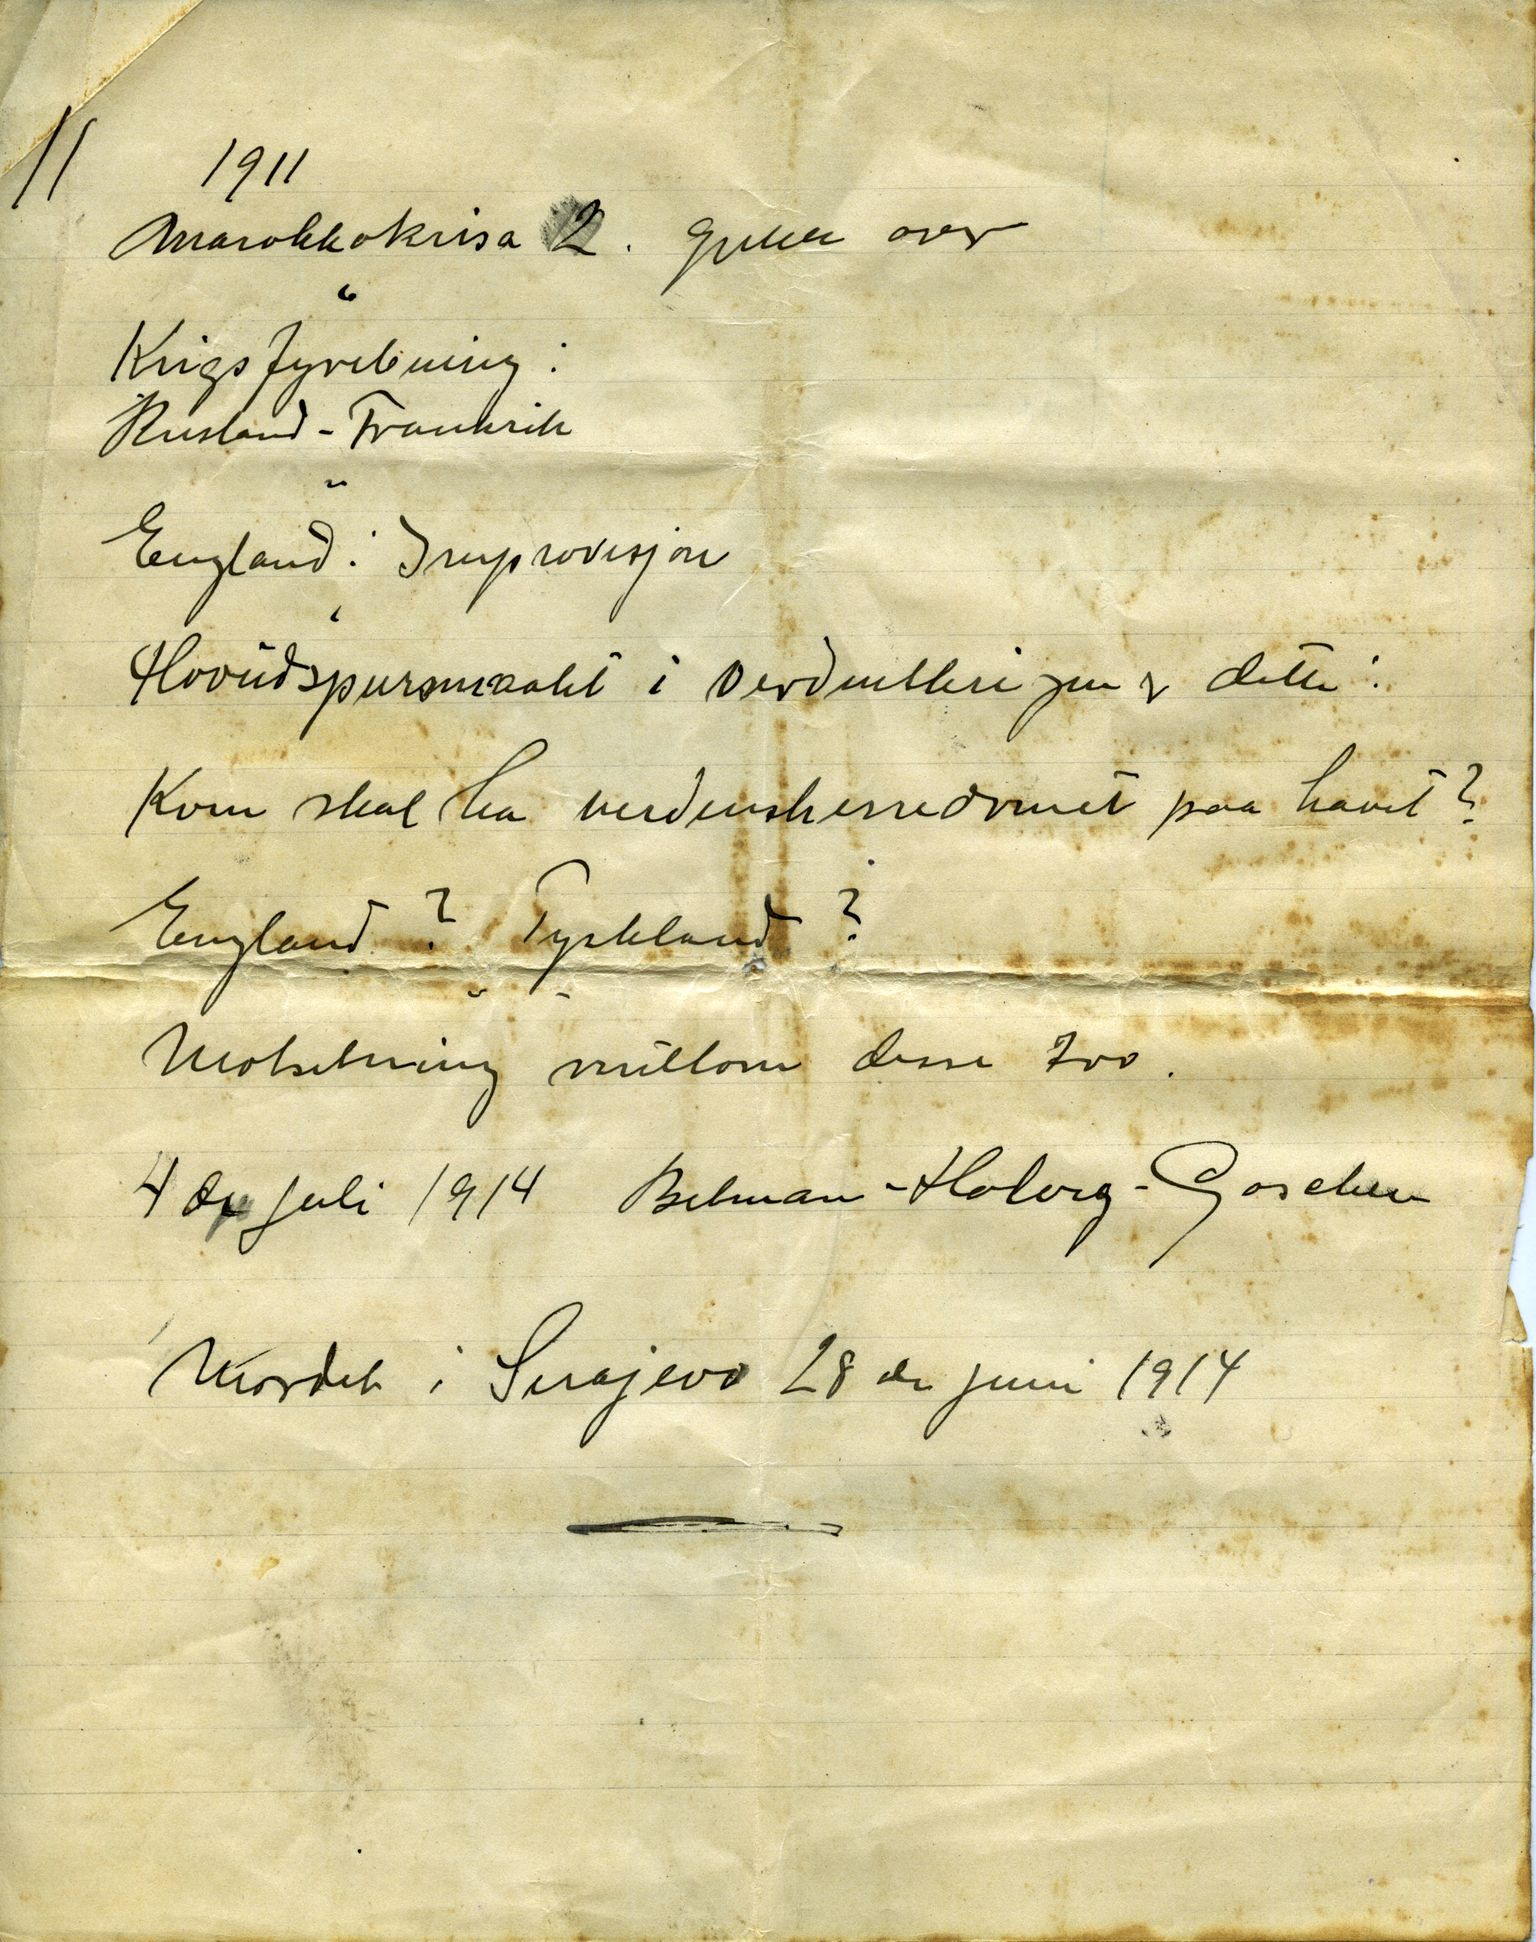 11 1911
Marokkokrisa 2. over
Krigsfyrebuing:
Rusland - Frankrik
England: Improvisjon
Hovudspursmaalet i verdenskrigen er dette:
Kven skal ha verdensherredømet paa havet?
England? Tyskland?
Motsetning millom desse tvo.
4 de juli 1914 Betman-Holveg-Goschen
Mordet i Serajevo 28 de juni 1914